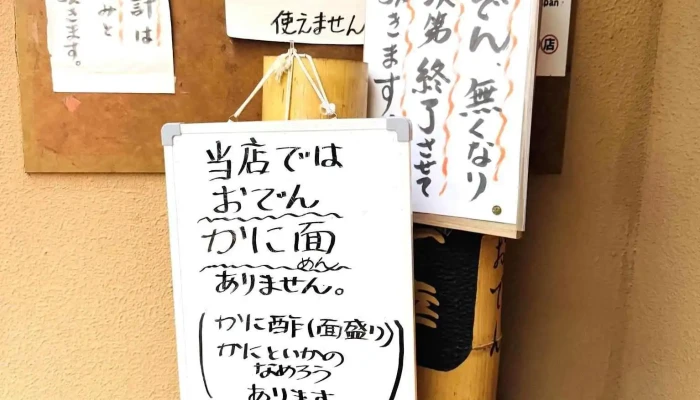 計は
みと
きます。
使えません
でん、無くなり
次第 終了させて
頂きます。
pan
店
当店では
おでん
かに面
めん
ありません。
(かに酢(面盛り)
かにといかの
なめろう
あります
おでん